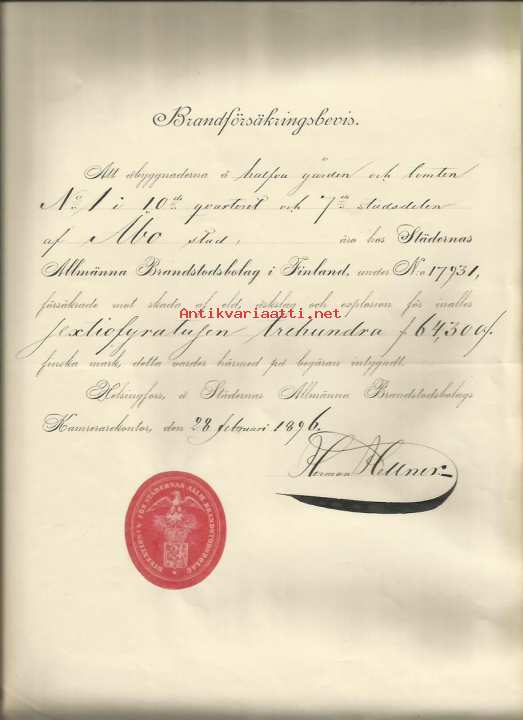 Brandförsäkringsbevis.
Att åbyggnaderna å halfva gården och tomten
No 1 i 10de quarteret och 7de stadsdelen
af Åbo stad, äro hos Städernas
Allmänna Brandstodsbolag i Finland, under No 17931,
försäkrade mot skada af eld, åskslag och explosion för inalles
Antikvariaatti.net
sextiofyratusen trehundra f 64,300/.
finska mark, detta varder härmed på begäran intygadt.
Helsingfors, å Städernas Allmänna Brandstodsbolags
Kamrerarekontor, den 28 februari 1896.
Herman Hellner
DIREKTIONEN FÖR STÄDERNAS ALLM. BRANDSTODSBOLAG